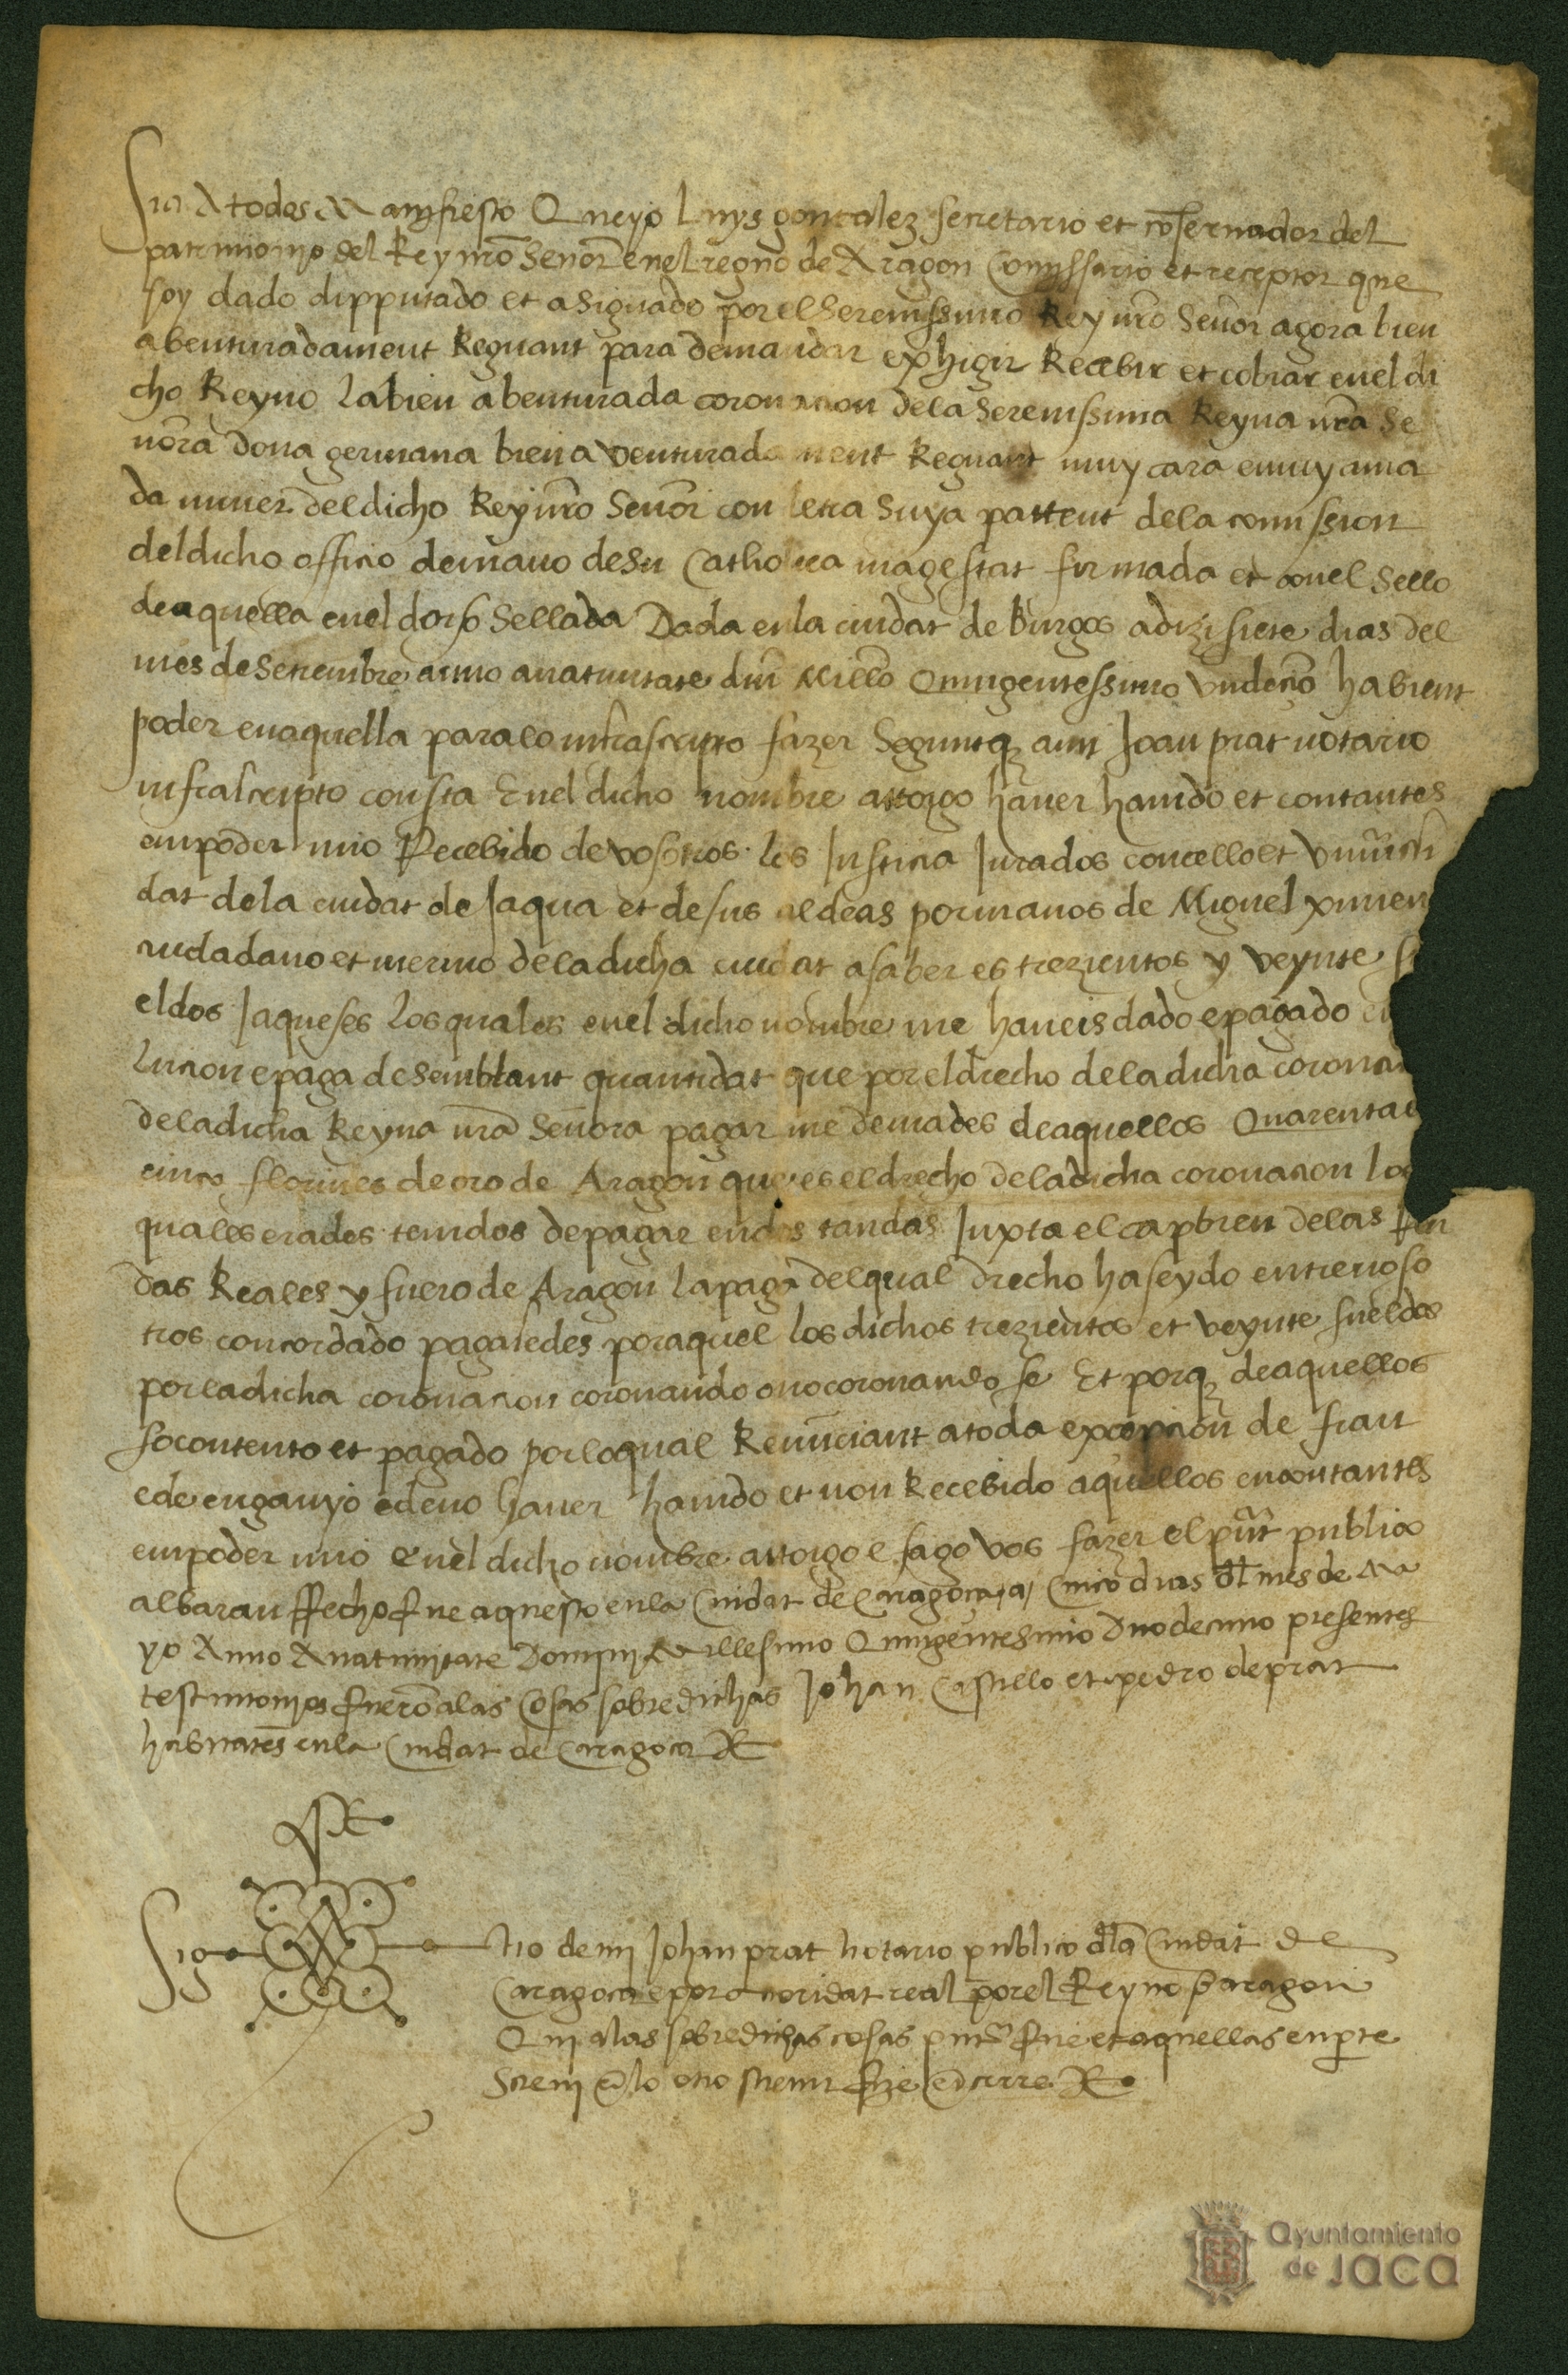 Sia A todos Manifiesto Que yo Luys gonçalez secretario et coservador del
patrimonio del Rey nro Senor en el regno de Aragon Comissario et receptor que
soy dado dipputado et asignado por el Serenissimo Rey nro Senor agora bien
abenturadament Regnant para demandar exhigir Recebir et cobrar en el di
cho Reyno la bien abenturada coronacion de la Serenissima Reyna nra Se
nora dona germana bien aventuradament Regnant muy cara e muy ama
da muxer del dicho Rey nro Senor con letra Suya pattent de la comission
del dicho officio de mano de Su Catholica magestat firmada et con el Sello
de aquella en el dorso Sellada Dada en la ciudat de Burgos a dizisiete dias del
mes de Setiembre anno a nativitate dni Millo Quingentessimo Undecio havient
poder en aquella para lo infrascripto fazer Segunt q a mi Joan prat notario
infrascripto consta En el dicho nombre atorgo haver havido et contantes
en poder mio Recebido de vosotros los Justicia Jurados concello et Universi
dat de la ciudat de Jaqua et de sus aldeas por manos de Miguel ximen
ciudadano et merino de la dicha ciudat a saber es trezientos y veynte s
eldos Jaqueses los quales en el dicho nombre me haveis dado e pagado en
lucion e paga de Semblant quantidat que por el drecho de la dicha corona
de la dicha Reyna nra Senora pagar me deviades de aquellos Quarenta e
cinco florines de oro de Aragon que es el drecho de la dicha coronacion lo
quales erades tenidos de pagar en dos tandas Juxta el capbreu de las Ren
das Reales y fuero de Aragon la paga del qual drecho ha seydo entre noso
tros concordado pagasedes por aquel los dichos trezientos et veynte sueldos
por la dicha coronacion coronando o no coronando se Et porq de aquellos
so contento et pagado por lo qual Renunciant a toda excepcion de frau
e de enganyo e de no haver havido et non Recebido aquellos en contantes
en poder mio en el dicho nombre atorgo e fago vos fazer el pnt publico
albaran ffecho fue aquesto en la Ciudat de Caragoca a Cinco dias del mes de Ma
yo Anno A nativitate Domini Millesimo Quingentesimo Duodecimo presentes
testimonios fuero a las Cosas sobredichas Johan Castillo et pedro de prat
habitates en la Ciudat de Caragoca
Sig no de mi Johan prat notario publico dla Ciudat de
Caragoca e por actoridat real por el Reyno d aragon
Qui a las sobredichas cosas pnt fue et aquellas en pte
Screvi e lo otro screvir fize e cerre
Ayuntamiento
de Jaca